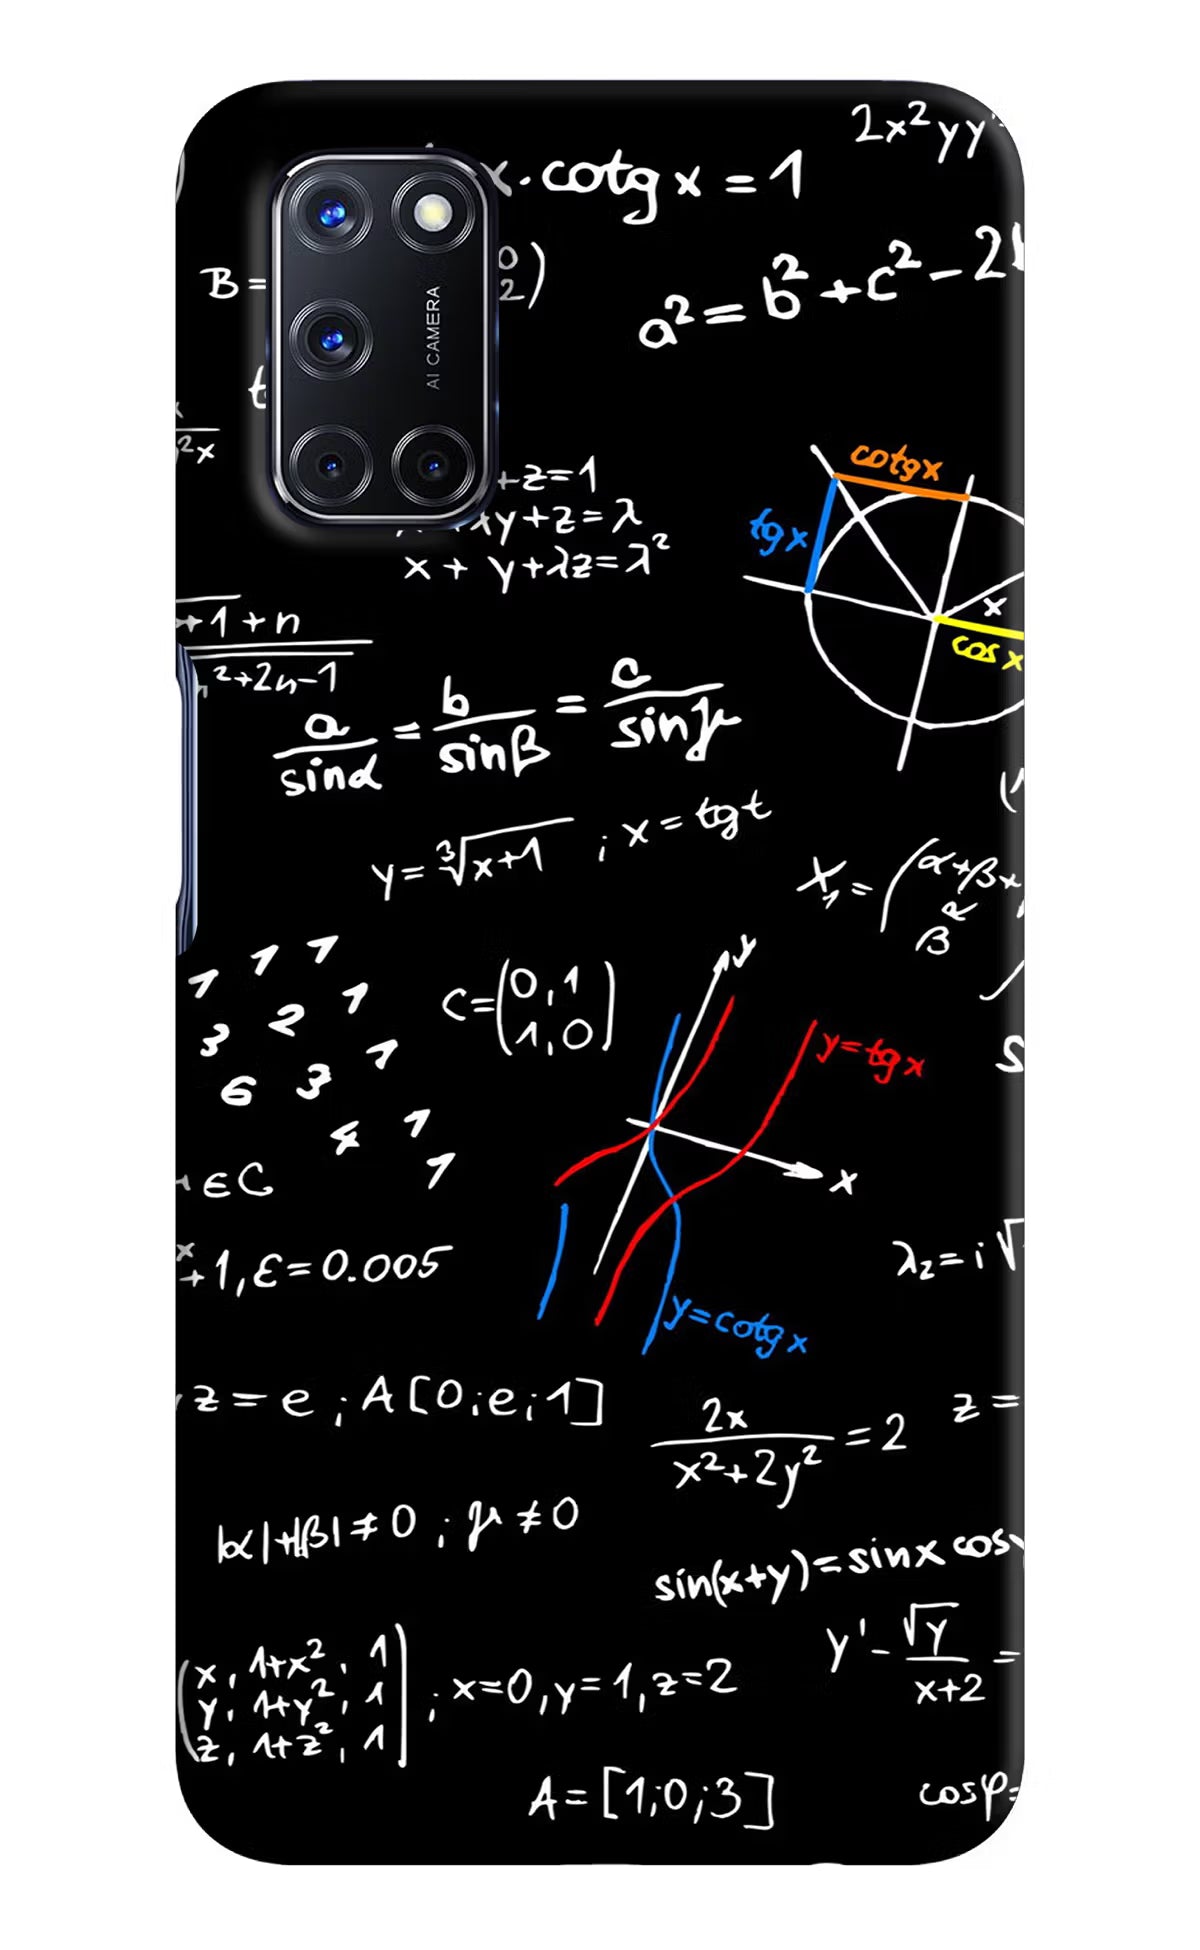 2x²yy'
x·cotg x = 1
B=
0)
2)
a² = b² + c² - 2
AI CAMERA
²x
+z=1
xy+z=λ
x + y+λz=λ²
cotgx
tgx
x
cos x
+1+n
²+2n-1
a/sinα = b/sinβ = c/sinγ
y = ³√x+1 ; x = tgt
X₁ = (α+β+
β R
1 1 1
3 2 1
6 3 1
4 1
1
C=(0,1
1,0)
y
y=tgx
x
∈C
+1, ε=0.005
λ₂=i√
y=cotgx
z = e ; A[0;e;1]
2x/x²+2y² = 2
z =
|α|+|β|≠0 ; γ≠0
sin(x+y)=sinx cosy
y' - √y/x+2 =
(x, 1+x², 1
y, 1+y², 1
z, 1+z², 1) ; x=0, y=1, z=2
A=[1;0;3]
cosφ=